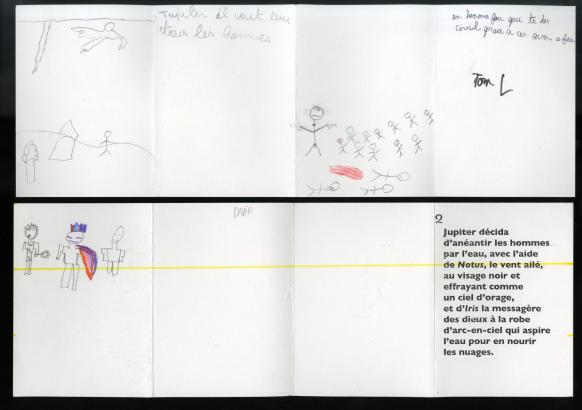 Jupiter il veut tuer
tous les hommes
un homme fou qui tu des
Tom L
DAVID
2
Jupiter décida
d'anéantir les hommes
par l'eau, avec l'aide
de Notus, le vent ailé,
au visage noir et
effrayant comme
un ciel d'orage,
et d'Iris la messagère
des dieux à la robe
d'arc-en-ciel qui aspire
l'eau pour en nourir
les nuages.